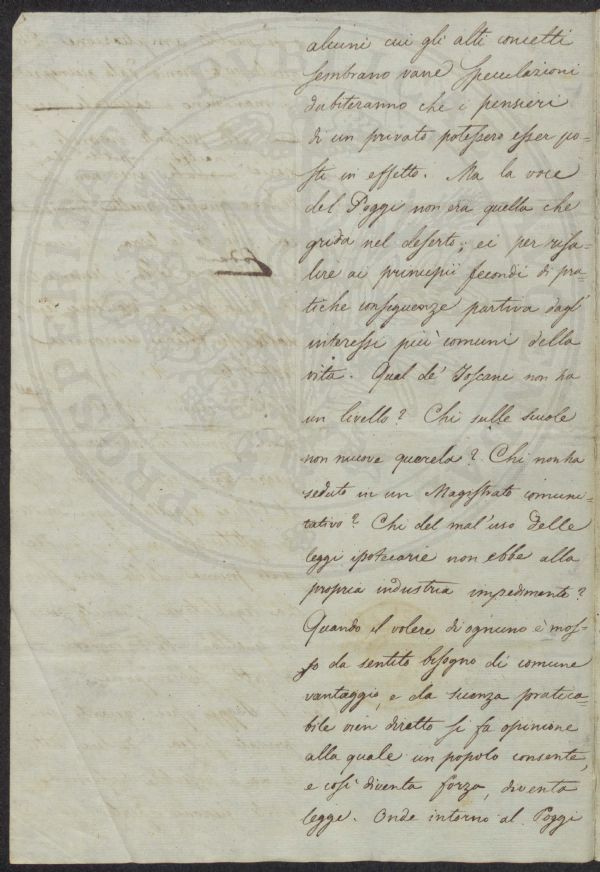 alcuni cui gli alti concetti
sembrano vane speculazioni
dubiteranno che i pensieri
di un privato potessero esser po-
sti in effetto. Ma la voce
del Poggi non era quella che
grida nel deserto; ei per risa-
lire ai principii fecondi di pra-
tiche conseguenze partiva dagl'
interessi più comuni della
vita. Qual de' Toscani non ha
un livello? Chi sulle scuole
non muove querela? Chi non ha
seduto in un Magistrato comuni-
tativo? Chi del mal'uso delle
leggi ipotecarie non ebbe alla
propria industria impedimento?
Quando il volere di ognuno è mos-
so da sentito bisogno di comune
vantaggio, e da scienza pratica-
bile vien diretto si fa opinione
alla quale un popolo consente,
e così diventa forza, diventa
legge. Onde intorno al Poggi
PROSPERITATI PUBLICAE